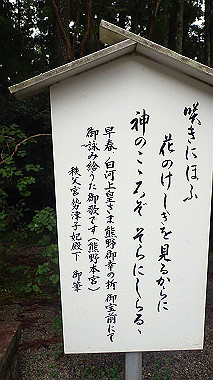 咲きにほふ
花のけしきを見るからに
神のこころぞ そらにしらるゝ
早春 白河上皇さま熊野御幸の折 御宝前にて
御詠み給うた御歌です(熊野本宮)
秩父宮勢津子妃殿下 御筆